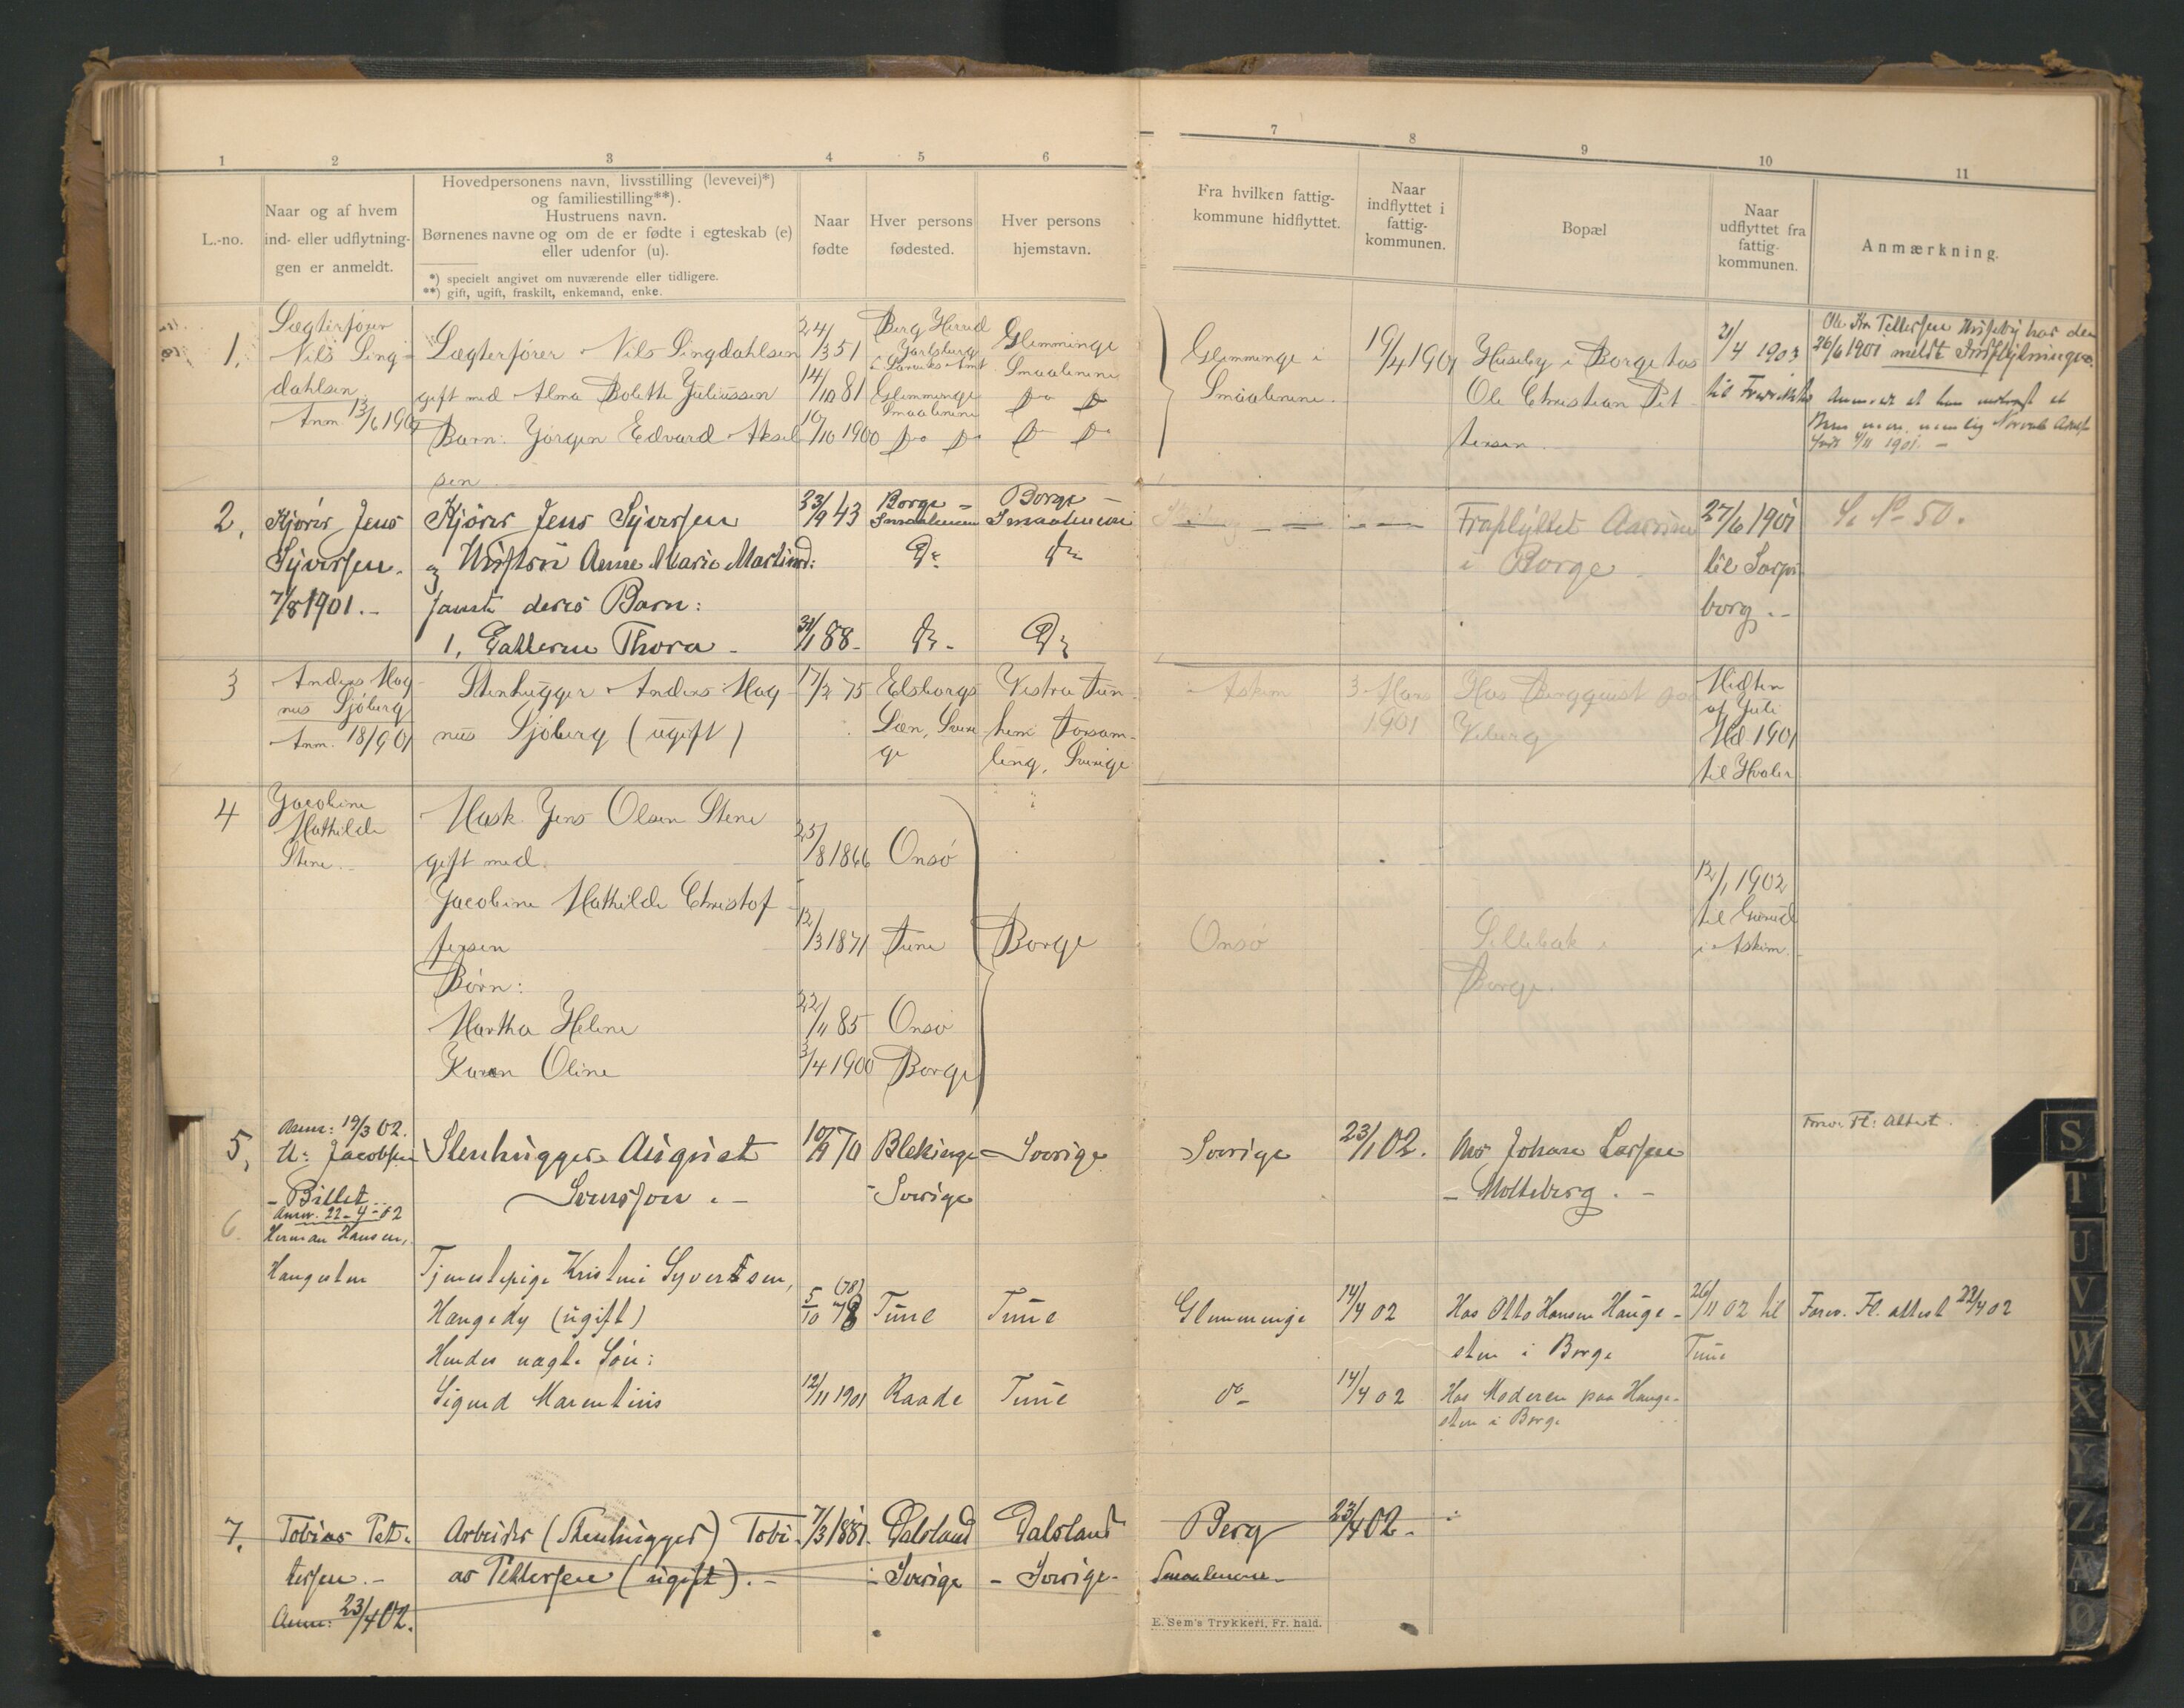 1 2 3 4 5 6 7 8 9 10 11
L.-no.
Naar og af hvem
ind- eller udflytnin-
gen er anmeldt.
Hovedpersonens navn, livsstilling (levevei)*)
og familiestilling**).
Hustruens navn.
Børnenes navne og om de er fødte i egteskab (e)
eller udenfor (u).
*) specielt angivet om nuværende eller tidligere.
**) gift, ugift, fraskilt, enkemand, enke.
Naar
fødte
Hver persons
fødested.
Hver persons
hjemstavn.
Fra hvilken fattig-
kommune hidflyttet.
Naar
indflyttet i
fattig-
kommunen.
Bopæl
Naar
udflyttet fra
fattig-
kommunen.
Anmærkning.
1.
Lægterfører
Nils Ling-
dahlsen
Anm. 13/6 1901
Lægterfører Nils Lingdahlsen
gift med Alma Bolette Juliussen
Barn: Jørgen Edvard Aksel
sen
24/3 51
14/10 81
10/10 1900
Berg Herred
Jarlsberg
& Larviks Amt
Glemminge
Smaalenene
Do Do
Glemminge
Smaalenene
Do Do
Do Do
Glemminge i
Smaalenene.
19/4 1901
Huseby i Borge hos
Ole Christian Pet-
tersen
/4 1903
til Fredrikstad
Ole Kr. Pettersen Huseby har den
26/6 1901 meldt Indflytningen.
1901. -
2.
Kjører Jens
Syversen.
7/8 1901. -
Kjører Jens Syversen
og Hustru Anne Marie Martinsd:
samt deres Barn:
1, Cathrine Thora -
23/9 43
31/1 88 -
Borge -
Smaalenene
Do
Do -
Borge -
Smaalenene
Do
Do
Fraflyttet
i Borge.
27/6 1901
til Sarps-
borg. -
50.
3
Anders Mag-
nus Sjöberg
Anm. 18/9 01
Stenhugger Anders Mag-
nus Sjöberg (ugift)
17/2 75
Elsborgs
Læn, Sveri
ge
Vestra Tun-
hem Forsam-
ling, Sverige
Askim
3 Mars
1901
Hos Bergquist paa
Viburg
Midten
af Juli
Md 1901
til Hvaler
4
Jacobine
Mathilde
Stene.
Mask. Jens Olsen Stene
gift med
Jacobine Mathilde Christof-
fersen
Børn:
Martha Helene
Karen Oline
25/8 1866
12/3 1871
22/11 85
3/4 1900
Onsö
Tune
Onsö
Borge
Borge
Onsö
Sellebak i
Borge.
12/1 1902
til
i Askim.
5,
Anm: 19/3 02.
H: Jacobsen
- Billet
Stenhugger August
Svensson. -
10/9 70
Blekinge
- Sverige
- Sverige
Sverige
23/1 02.
Hos Johan Larsen
- Molteberg. -
Forev. Fl: Attest.
6.
Anm. 22-4-02
Herman Hansen,
Haugesten
Tjenestepige Kristine Syvertsen,
Haugedy (ugift)
Hendes uægte Søn:
Sigurd Marentius
(78)
5/10 78
12/11 1901
Tune
Raade
Tune
Tune
Glemminge
do -
14/4 02
14/4 02
Hos Otto Hansen Hauge-
sten i Borge
Hos Moderen paa Hauge-
sten i Borge
26/11 02 til
Tune
Forev. Fl. attest 22/4 02
7.
Tobias Pet-
tersen. -
Anm: 23/4 02.
Arbeider (Stenhugger) Tobi-
as Pettersen (ugift). -
7/3 1881.
Dalsland
- Sverige
Dalsland
- Sverige -
Berg
Smaalenene -
23/4 02. -
E. Sem's Trykkeri, Fr.hald.
S
T
U
V
W
X
Y
Z
Æ
Ø